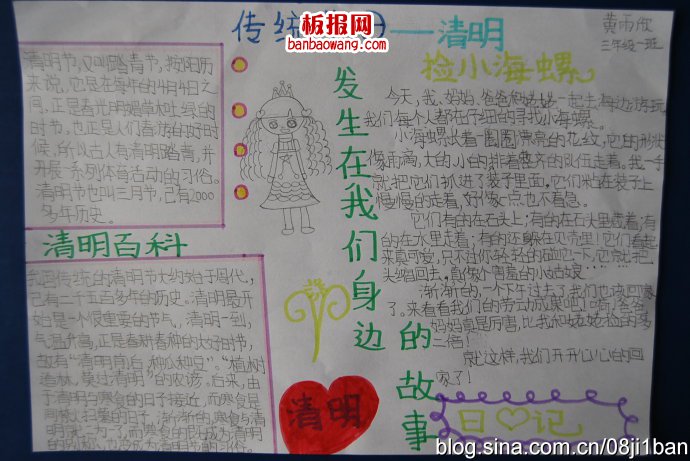 传统节日——清明
板报网
banbaowang.com
黄雨欣
三年级一班
清明节,又叫踏青节,按阳历
来说,它是在每年的4月4日之
间,正是春光明媚草木吐绿的
时节,也正是人们春游的好时
候,所以古人有清明踏青,并
开展一系列体育活动的习俗。
清明节也叫三月节,已有2000
多年历史。
清明百科
我国传统的清明节大约始于周代,
已有二千五百多年的历史。清明最开
始是一个很重要的节气,清明一到,
气温升高,正是春耕春种的大好时节,
故有“清明前后,种瓜种豆”。“植树
造林,莫过清明”的农谚。后来,由
于清明与寒食的日子接近,而寒食是
民间禁火扫墓的日子,渐渐的,寒食与清明
发生在我们身边
的故事
清明
捡小海螺
今天,我、妈妈、爸爸和姥姥一起去海边游玩,
我们每个人都在仔细的寻找小海螺。
小海螺长着一圈圈漂亮的花纹,它的形状
像距离,大的小的排着整齐的队伍走着。我一手
就把它们抓进了袋子里面,它们粘在袋子上
慢慢的走着,好像一点也不着急。
它们有的在石头上;有的在石头里藏着;有
的在水里走着;有的还躲在贝壳里!它们看起
来真可爱,只不过你轻轻的碰它一下,它就把
头缩回去,真像个害羞的小姑娘……
渐渐的,一个下午过去了我们也该回家
了。来看看我们的劳动成果吧!啊,爸爸
妈妈真是厉害,比我和姥姥捡的多
二倍!
就这样,我们开开心心的回
家了!
日记
blog.sina.com.cn/08ji1ban